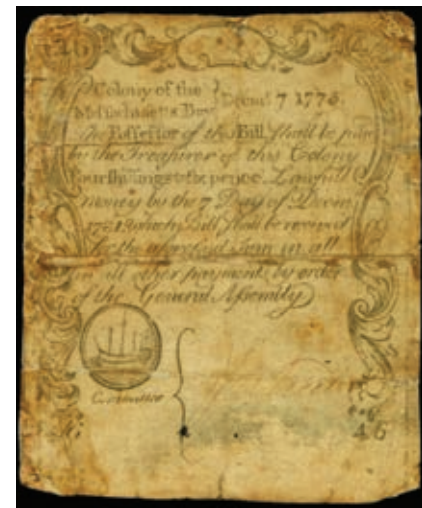 Colony of the
Massachusetts Bay } Decemr 7 1775.
The Possessor of this Bill shall be paid
by the Treasurer of this Colony
Four shillings & six pence Lawfull
money by the 7 Day of Decem
1781 which Bill shall be received
for the aforesaid Sum in all
in all other payments by order
of the General Assembly
Committee
4s6